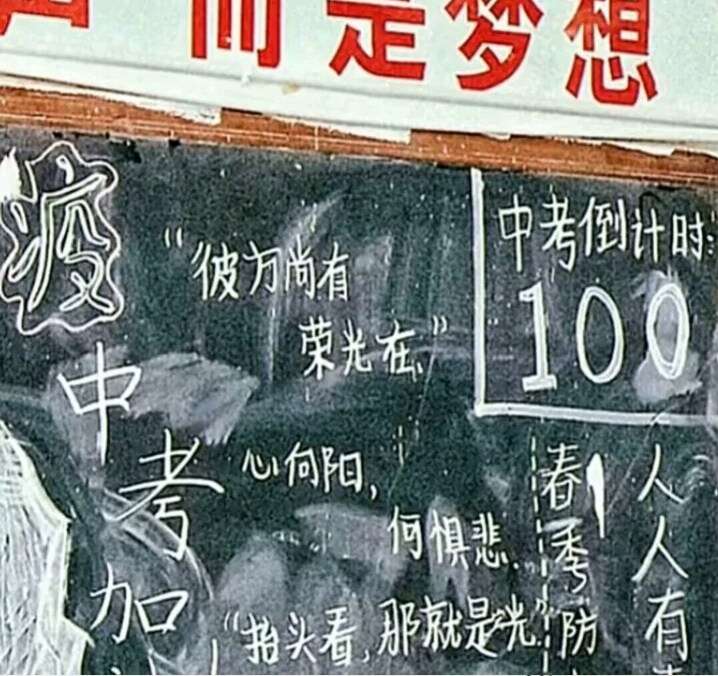 而是梦想
疫
中考加
“彼方尚有
荣光在”
中考倒计时:
100
心向阳,
何惧悲.
“抬头看,那就是光
春季防
人人有